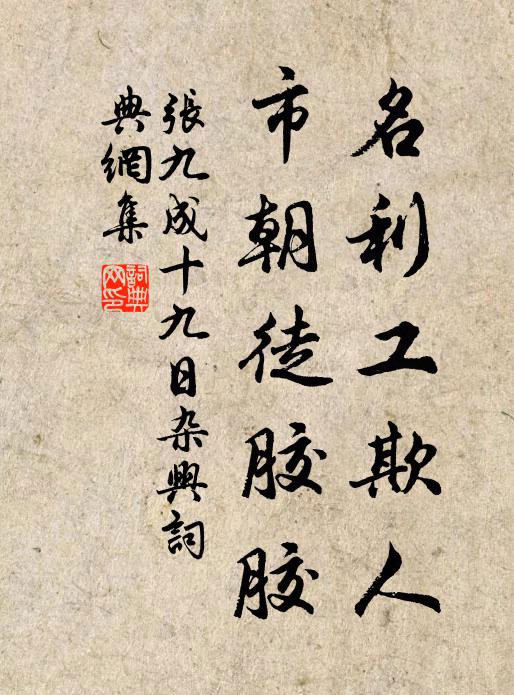 名利工欺人
市朝徒胶胶
張九成十九日杂興詞
典網集
詞典網印